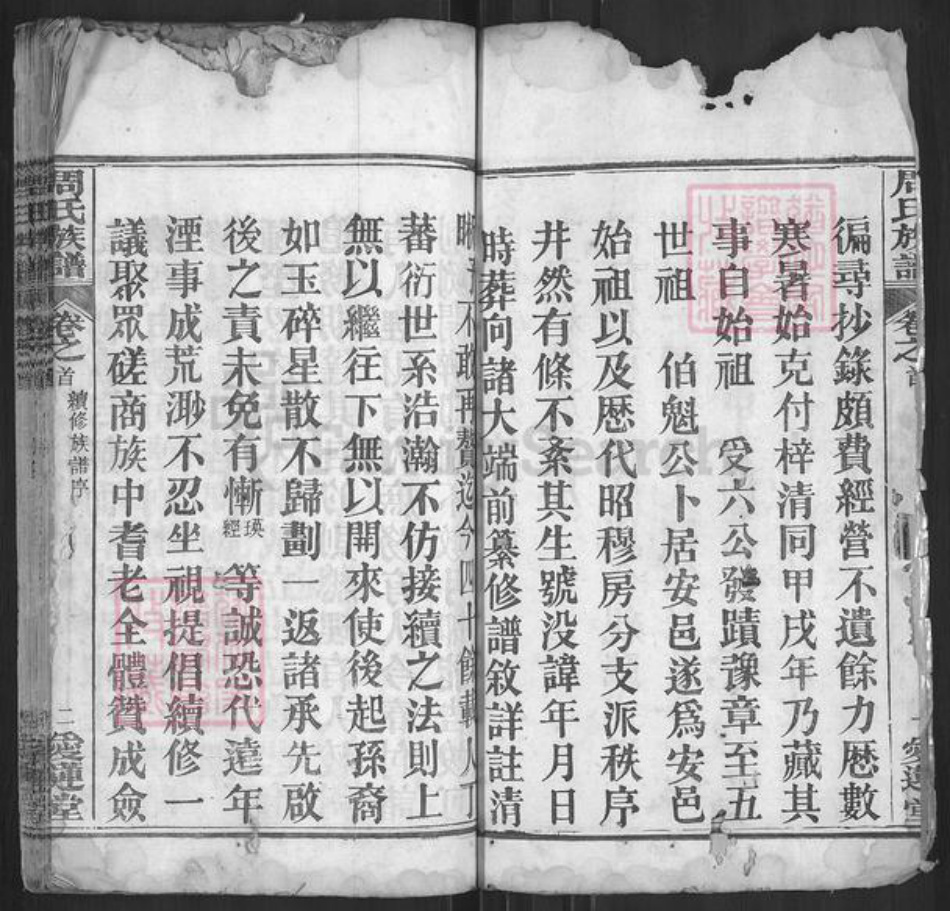 周氏族譜
卷之首
一
愛蓮堂
徧尋抄錄頗費經營不遺餘力歷數
寒暑始克付梓清同甲戌年乃藏其
事自始祖 受六公發蹟豫章至五
世祖 伯魁公卜居安邑遂爲安邑
始祖以及歷代昭穆房分支派秩序
井然有條不紊其生號没諱年月日
時葬向諸大端前纂修譜敘詳註清
晰予不敢再贅迄今四十餘載人丁
蕃衍世系浩瀚不仿接續之法則上
無以繼往下無以開來使後起孫裔
如玉碎星散不歸劃一返諸承先啟
後之責未免有慚瑛經等誠恐代遠年
湮事成荒渺不忍坐視提倡續修一
議聚眾磋商族中耆老全體贊成僉
周氏族譜
卷之首
續修族譜序
二
愛蓮堂